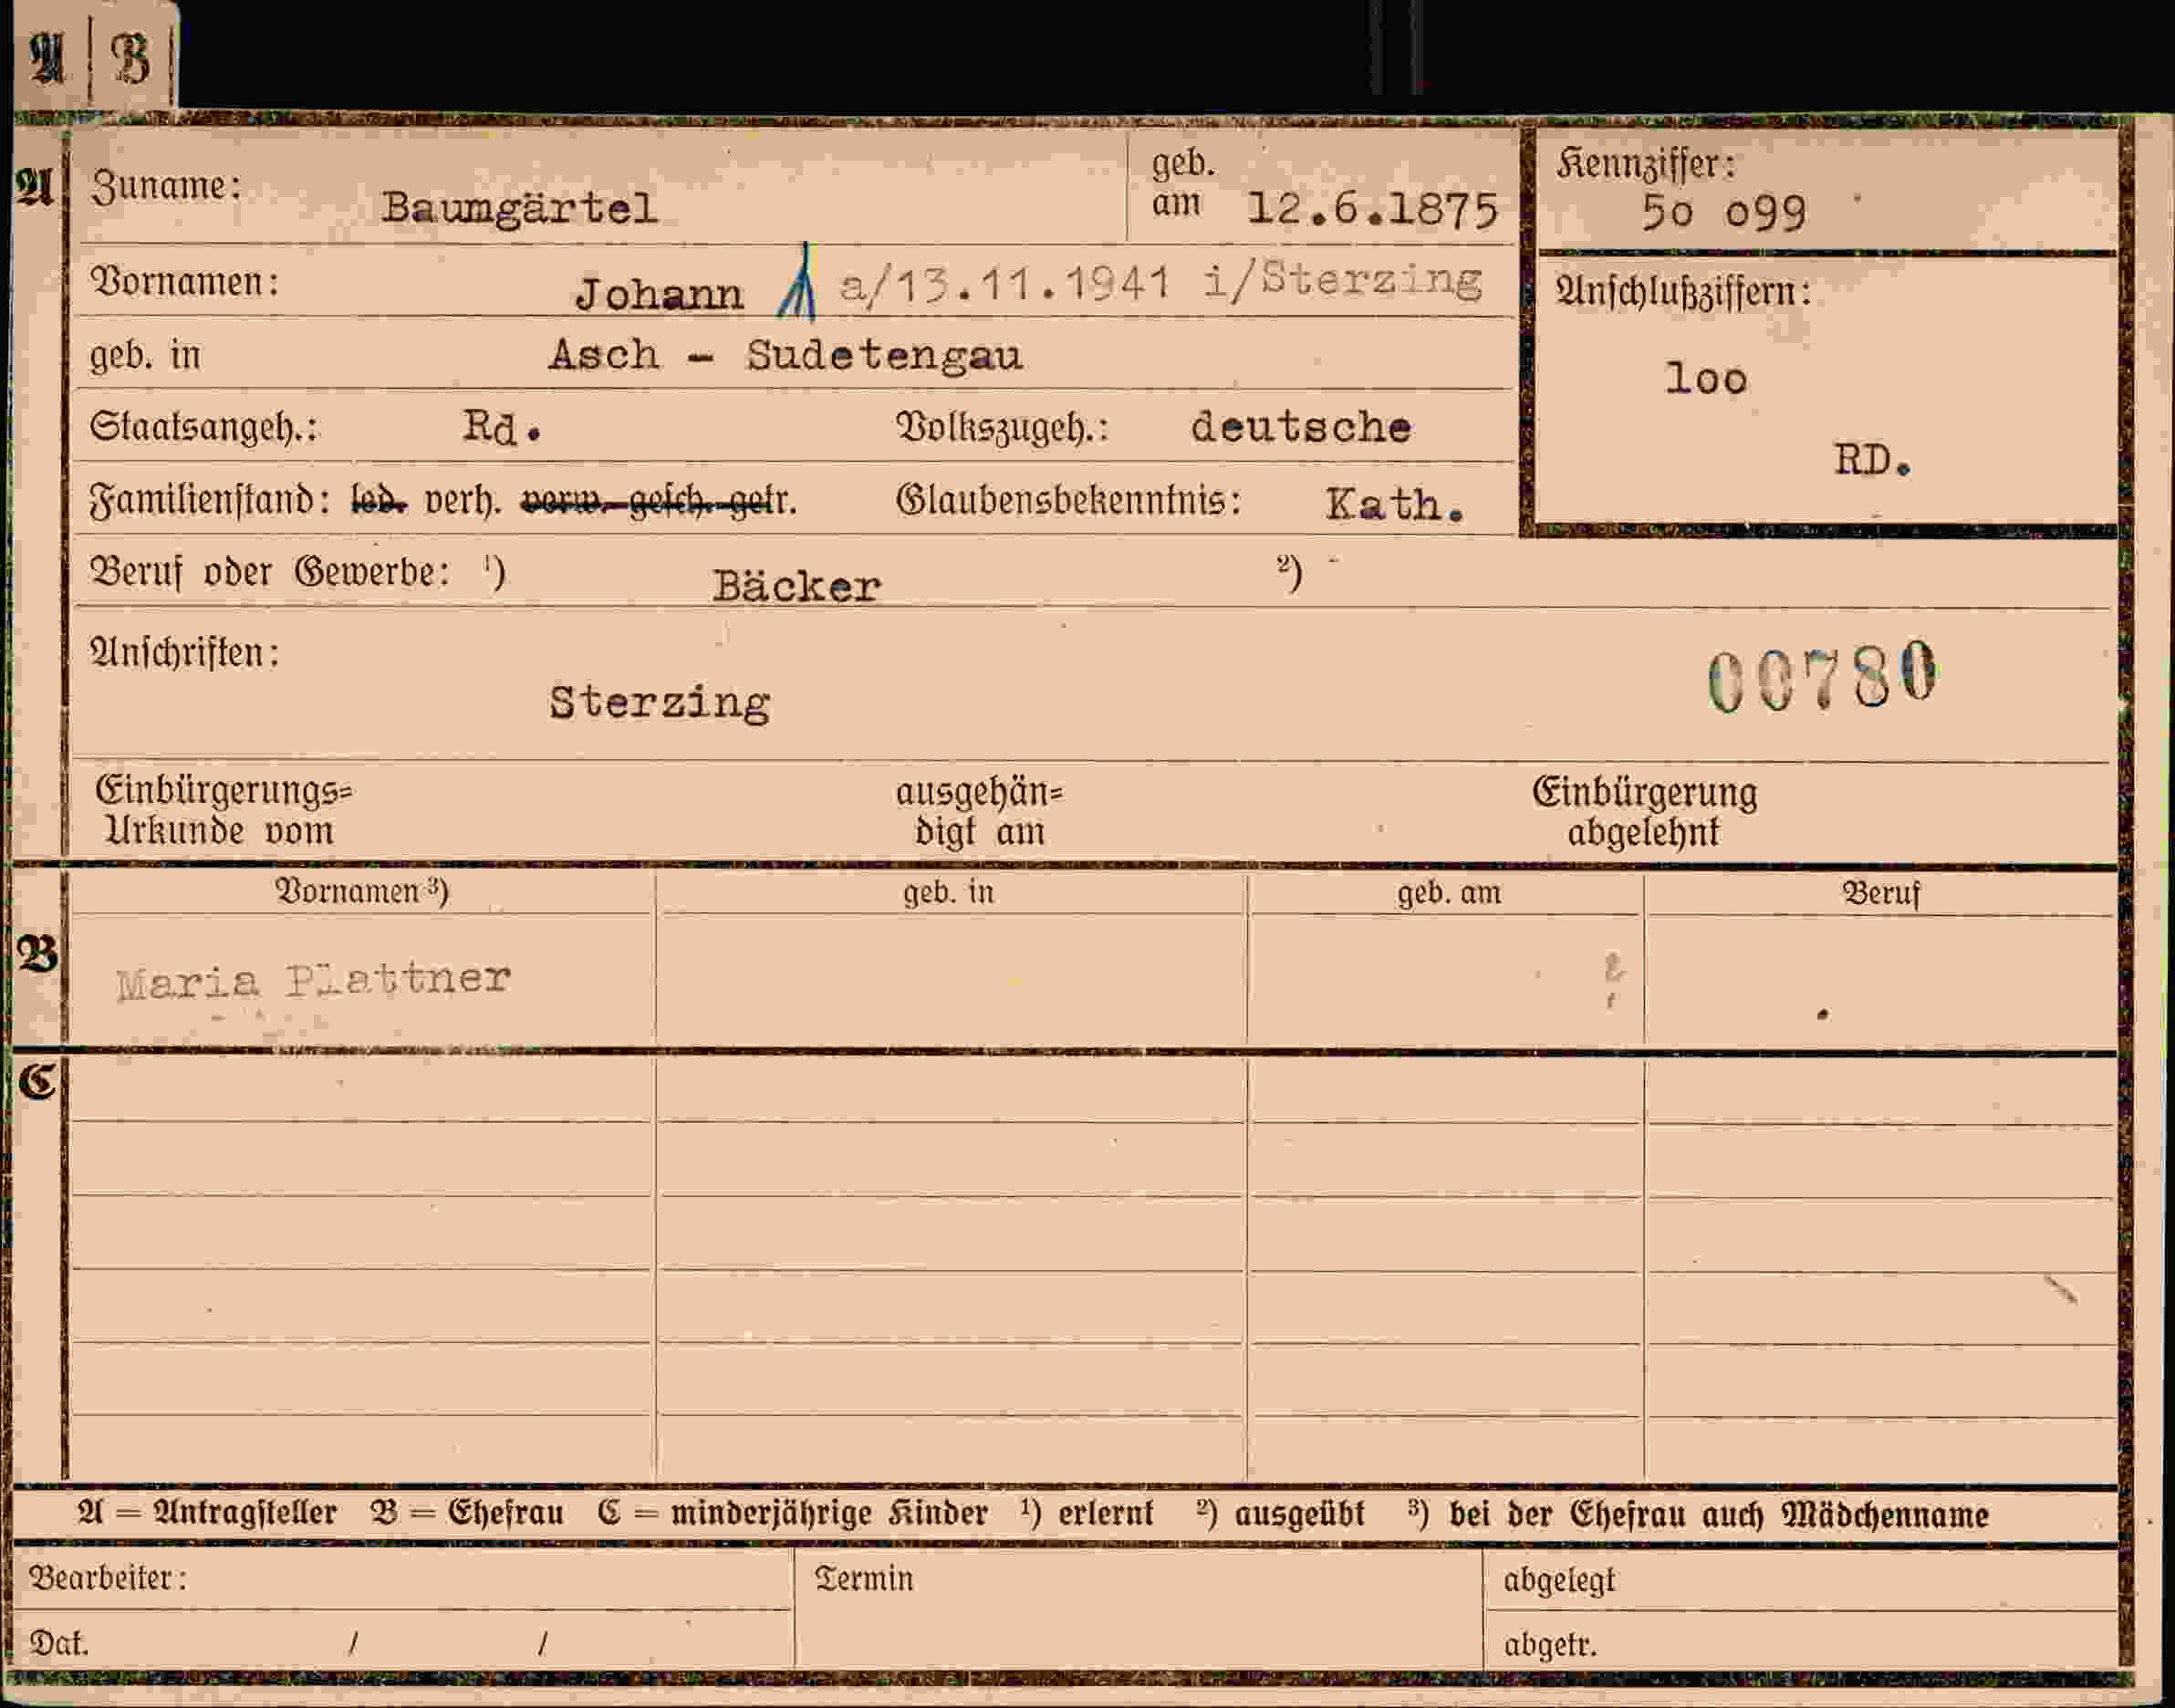 A | B
A
Zuname: Baumgärtel geb. am 12.6.1875
Kennziffer: 50 099
Vornamen: Johann a/13.11.1941 i/Sterzing
Anschlußziffern:
geb. in Asch - Sudetengau
loo
Staatsangeh.: Rd. Volkszugeh.: deutsche
RD.
Familienstand: led. verh. verw. gesch. getr. Glaubensbekenntnis: Kath.
Beruf oder Gewerbe: ¹) Bäcker ²) -
Anschriften:
00780
Sterzing
Einbürgerungs= ausgehän= Einbürgerung
Urkunde vom digt am abgelehnt
Vornamen ³) geb. in geb. am Beruf
B
Maria Plattner
C
A = Antragsteller B = Ehefrau C = minderjährige Kinder ¹) erlernt ²) ausgeübt ³) bei der Ehefrau auch Mädchenname
Bearbeiter: Termin abgelegt
Dat. / / abgetr.